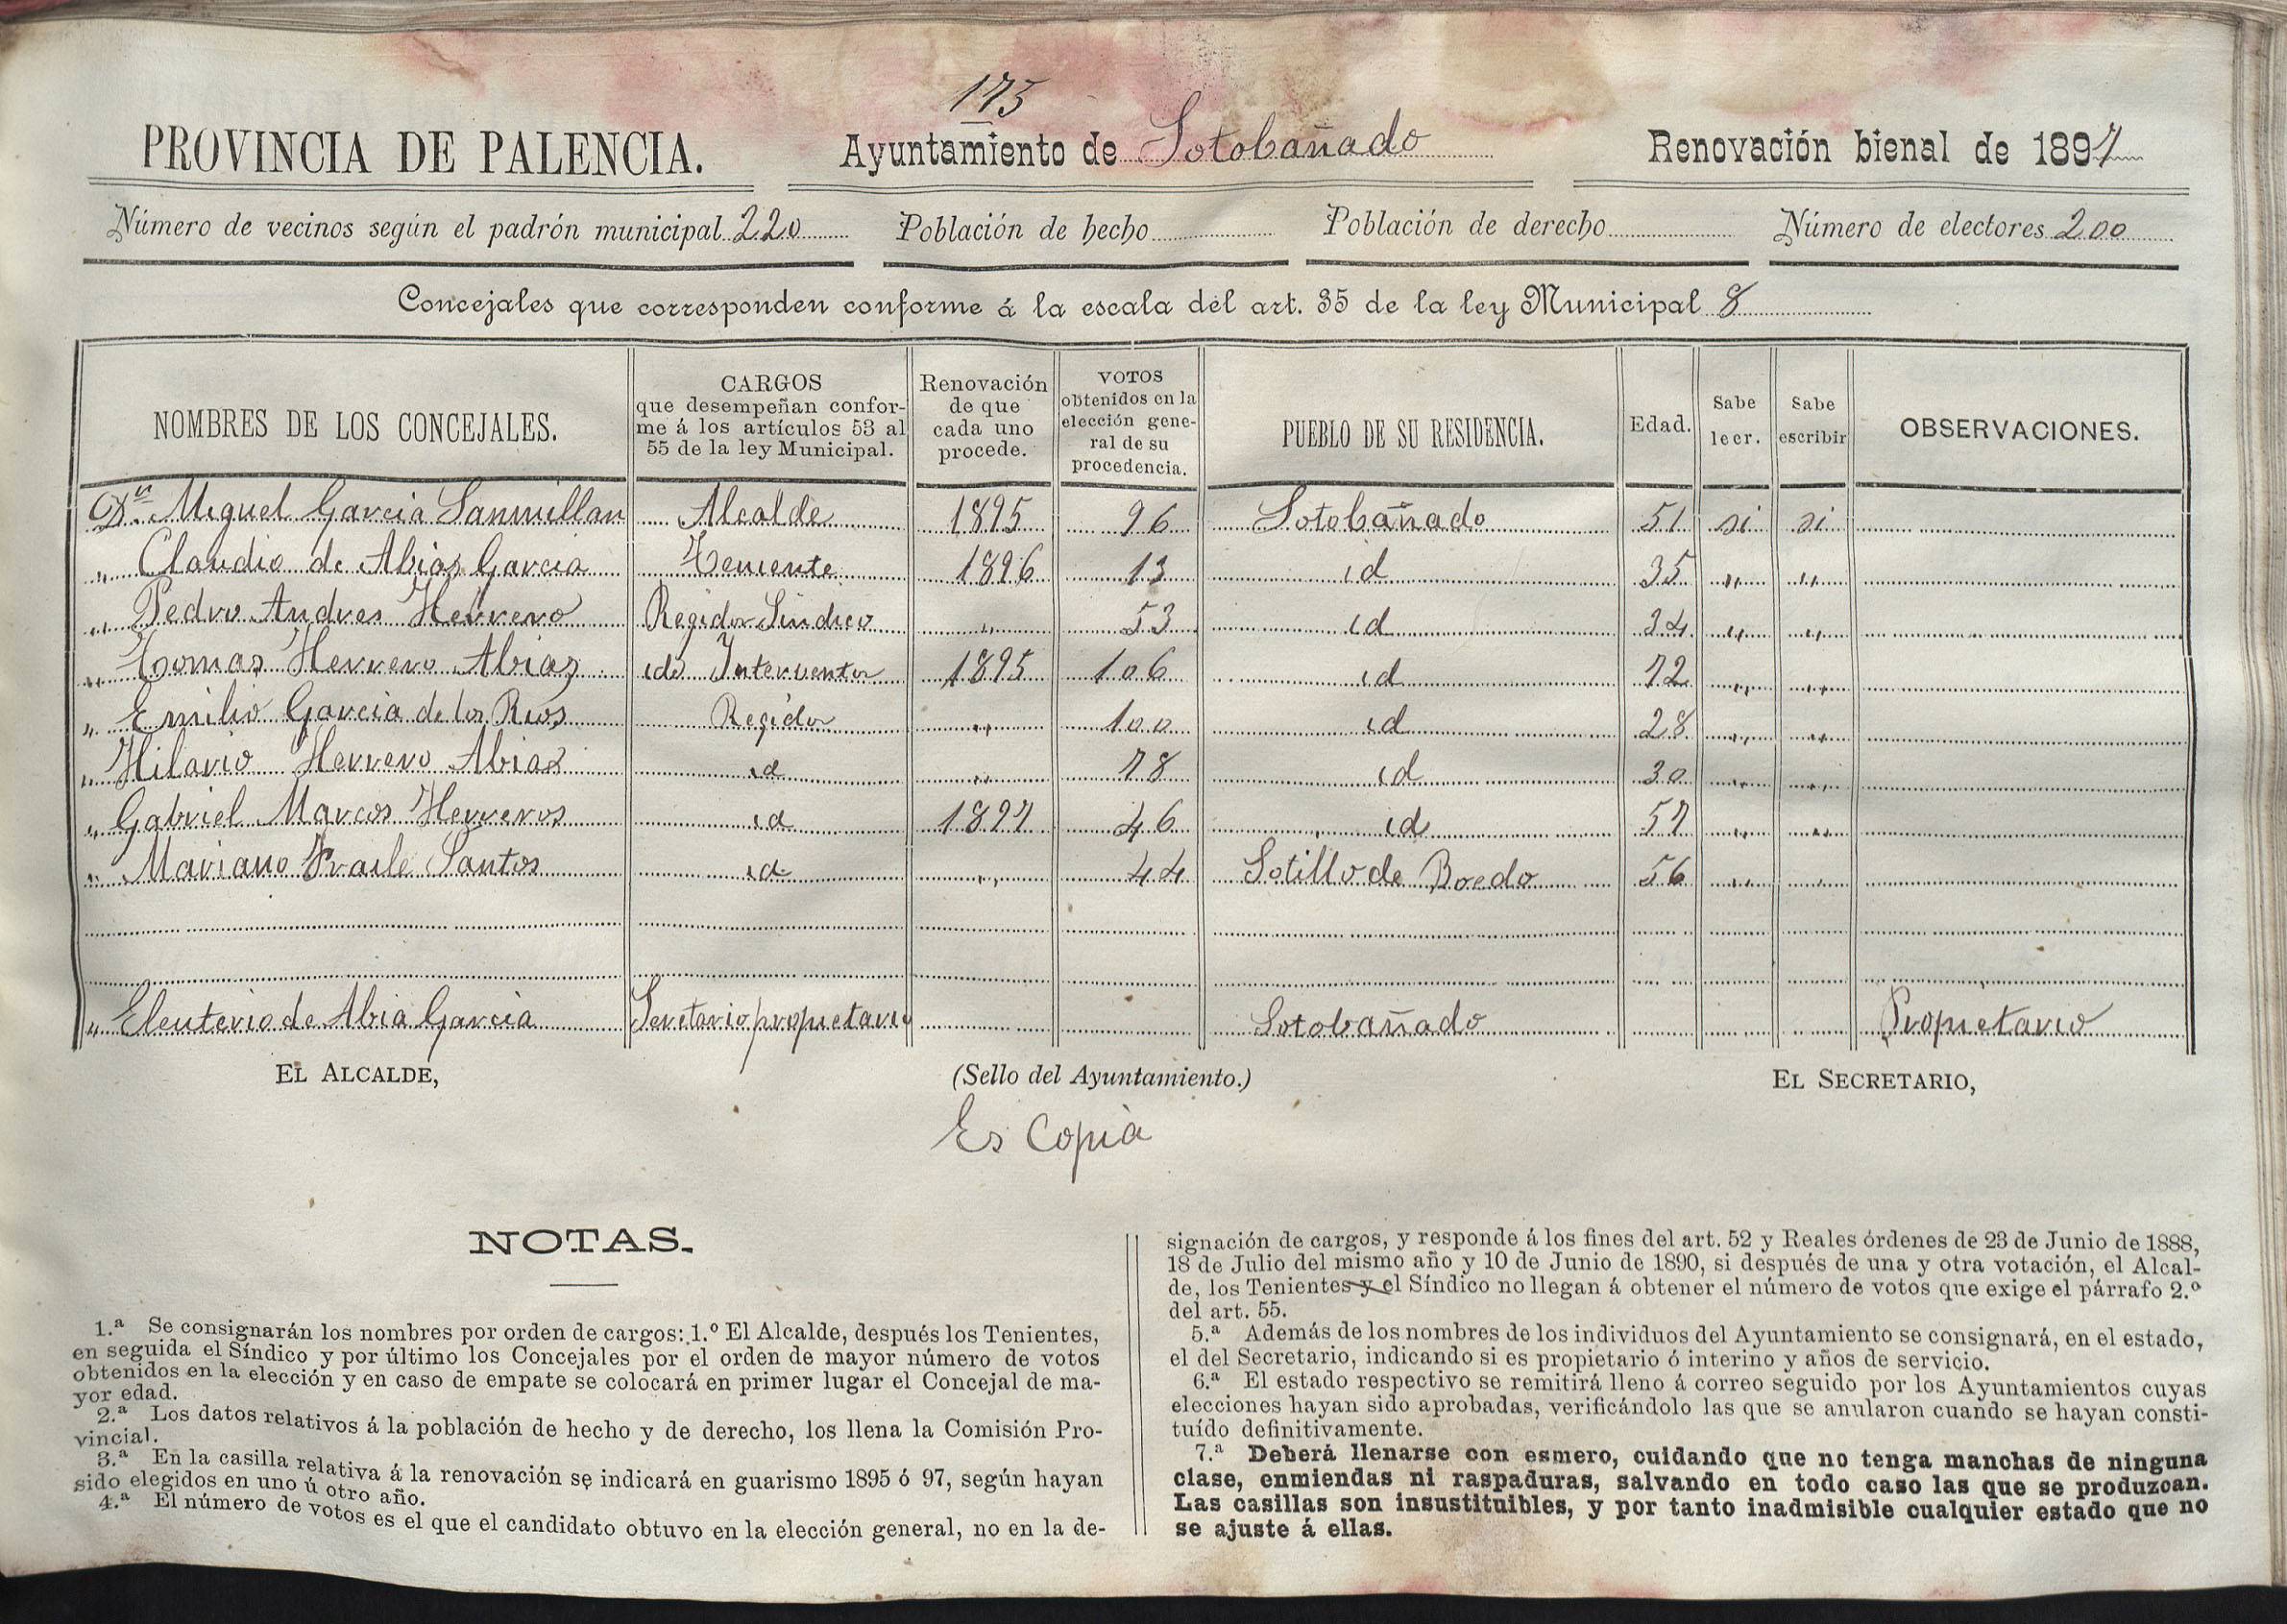 175
PROVINCIA DE PALENCIA. Ayuntamiento de Sotobañado Renovación bienal de 1897
Número de vecinos según el padrón municipal 220 Población de hecho Población de derecho Número de electores 200
Concejales que corresponden conforme á la escala del art. 35 de la ley Municipal 8
NOMBRES DE LOS CONCEJALES. CARGOS que desempeñan conforme á los artículos 53 al 55 de la ley Municipal. Renovación de que cada uno procede. VOTOS obtenidos en la elección general de su procedencia. PUEBLO DE SU RESIDENCIA. Edad. Sabe leer. Sabe escribir OBSERVACIONES.
Dn. Miguel Garcia Sanmillan Alcalde 1895 96 Sotobañado 51 si si
" Claudio de Abias Garcia Teniente 1896 13 id 35 " "
" Pedro Andres Herrero Regidor Sindico " 53 id 34 " "
" Tomas Herrero Abias ido Interventor 1895 106 id 72 " "
" Emilio Garcia de los Rios Regidor " 100 id 28 " "
" Hilario Herrero Abias id " 78 id 30 " "
" Gabriel Marcos Herreros id 1897 46 id 57 " "
" Mariano Fraile Santos id " 44 Sotillo de Boedo 56 " "
" Eleuterio de Abia Garcia Secretario propietario Sotobañado Propietario
EL ALCALDE, (Sello del Ayuntamiento.) EL SECRETARIO,
Es Copia
NOTAS.
1.ª Se consignarán los nombres por orden de cargos: 1.º El Alcalde, después los Tenientes,
en seguida el Síndico y por último los Concejales por el orden de mayor número de votos
obtenidos en la elección y en caso de empate se colocará en primer lugar el Concejal de ma-
yor edad.
2.ª Los datos relativos á la población de hecho y de derecho, los llena la Comisión Pro-
vincial.
3.ª En la casilla relativa á la renovación se indicará en guarismo 1895 ó 97, según hayan
sido elegidos en uno ú otro año.
4.ª El número de votos es el que el candidato obtuvo en la elección general, no en la de-
signación de cargos, y responde á los fines del art. 52 y Reales órdenes de 23 de Junio de 1888,
18 de Julio del mismo año y 10 de Junio de 1890, si después de una y otra votación, el Alcal-
de, los Tenientes y el Síndico no llegan á obtener el número de votos que exige el párrafo 2.º
del art. 55.
5.ª Además de los nombres de los individuos del Ayuntamiento se consignará, en el estado,
el del Secretario, indicando si es propietario ó interino y años de servicio.
6.ª El estado respectivo se remitirá lleno á correo seguido por los Ayuntamientos cuyas
elecciones hayan sido aprobadas, verificándolo las que se anularon cuando se hayan consti-
tuído definitivamente.
7.ª Deberá llenarse con esmero, cuidando que no tenga manchas de ninguna
clase, enmiendas ni raspaduras, salvando en todo caso las que se produzcan.
Las casillas son insustituibles, y por tanto inadmisible cualquier estado que no
se ajuste á ellas.